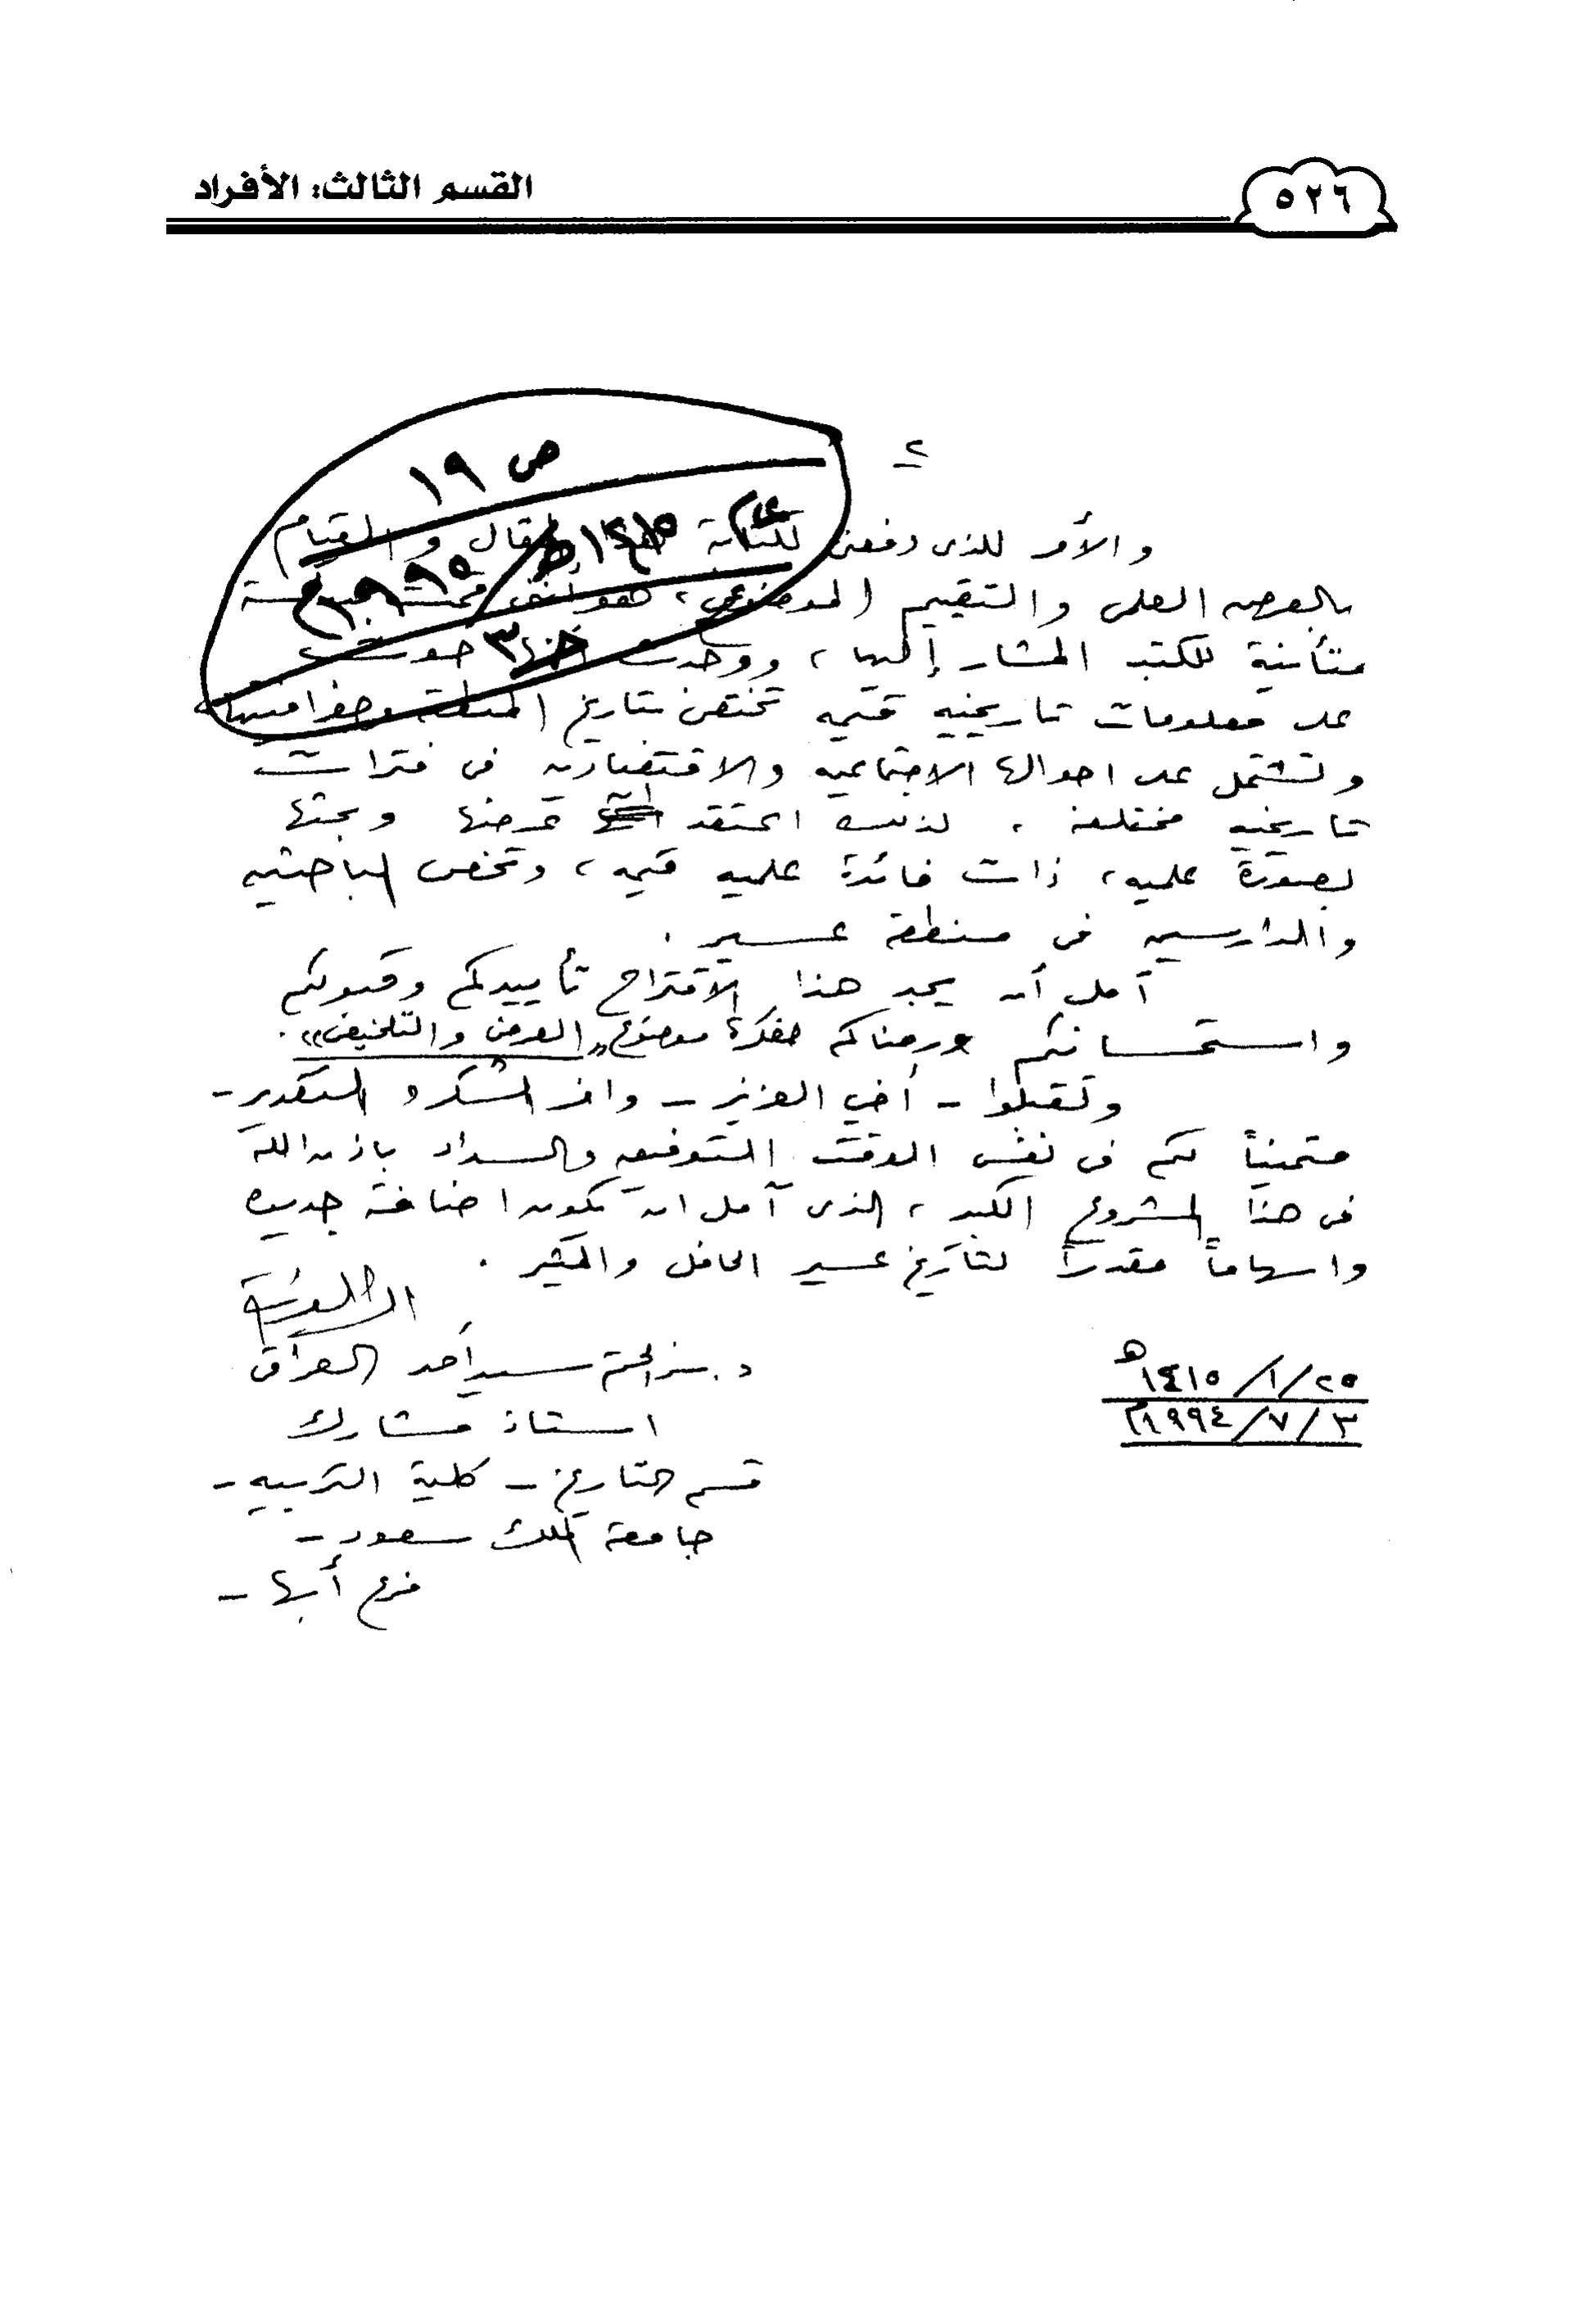 القسم الثالث: الأفراد
٥٢٦
ص ١٩
عام ١٤١٥هـ/١٩٩٥م
ج٣
٢
والأمر الذى دفعنى للكتابة هذا المقال والقيام
بالعرض العلمى والتقييم الموضوعى، هو أننى قمت بدراسة
متأنية للكتب المشار إليها، ووجدت أنها حوت
على معلومات تاريخيه قيمه تختص بتاريخ المنطقة وجغرافيتها
وتشتمل على احوالها الاجتماعيه والاقتصاديه فى فترات
تاريخيه مختلفه. لذلك اعتقد ان عرضها وبحثها
بصورة علميه، ذات فائدة علميه قيمه، وتخص الباحثين
والدارسين فى منطقة عسير.
آمل أن يجد هذا الاقتراح تأييدكم وقبولكم
واستحسانكم ورضاكم لفكرة موضوع «العرض والتلخيص».
وتقبلوا - أخي العزيز - وافر الشكر والتقدير -
متمنياً لكم فى نفس الوقت التوفيق والسداد باذن الله
فى هذا المشروع الكبير، الذى آمل ان يكون اضافة جديده
واسهاماً مقدراً لتأريخ عسير الحافل والمثير.
د. سر الختم سيد أحمد العراقى
استاذ مشارك
قسم التاريخ - كلية التربيه -
جامعة الملك سعود -
فرع أبها -
٢٥/١/١٤١٥هـ
٣/٧/١٩٩٤م